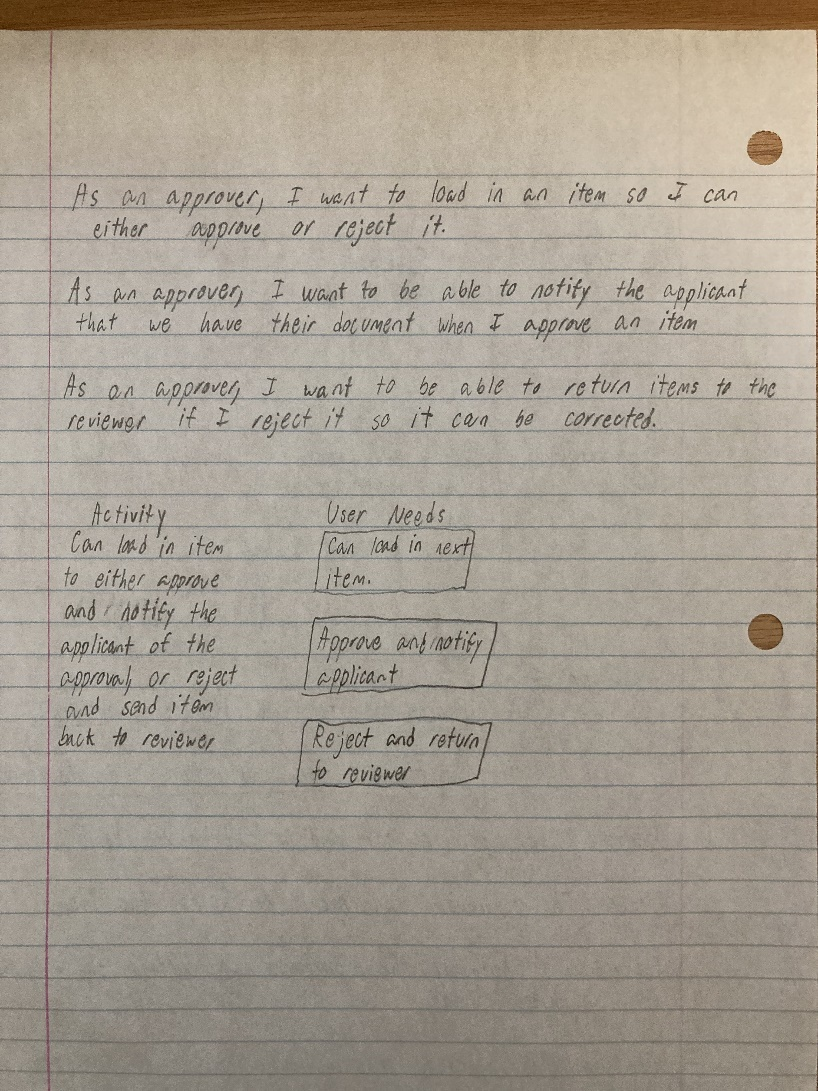 As an approver, I want to load in an item so I can
either approve or reject it.
As an approver, I want to be able to notify the applicant
that we have their document when I approve an item
As an approver, I want to be able to return items to the
reviewer if I reject it so it can be corrected.
Activity
Can load in item
to either approve
and notify the
applicant of the
approval, or reject
and send item
back to reviewer
User Needs
Can load in next
item.
Approve and notify
applicant
Reject and return
to reviewer